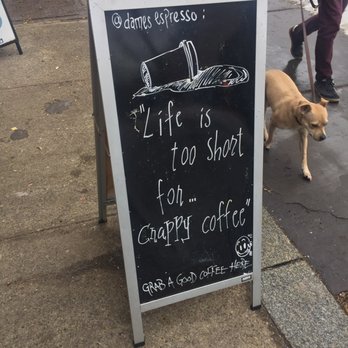 @dames espresso:
"Life is
too short
for...
crappy coffee"
GRAB A GOOD COFFEE HERE